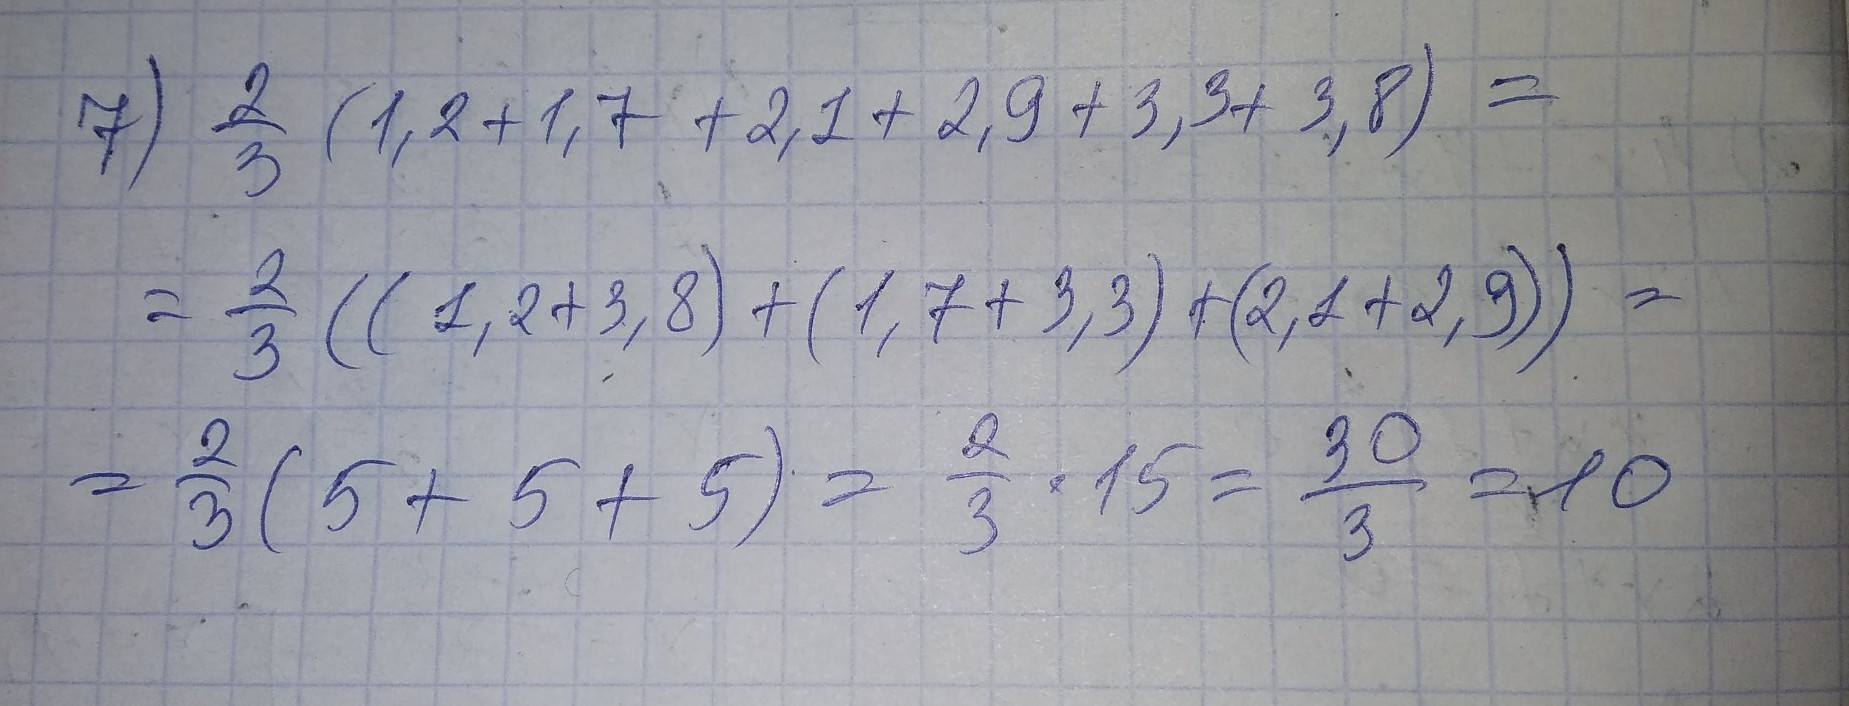 7) 2/3 (1,2+1,7+2,1+2,9+3,3+3,8) =
= 2/3 ((1,2+3,8)+(1,7+3,3)+(2,1+2,9)) =
= 2/3 (5+5+5) = 2/3 · 15 = 30/3 = 10